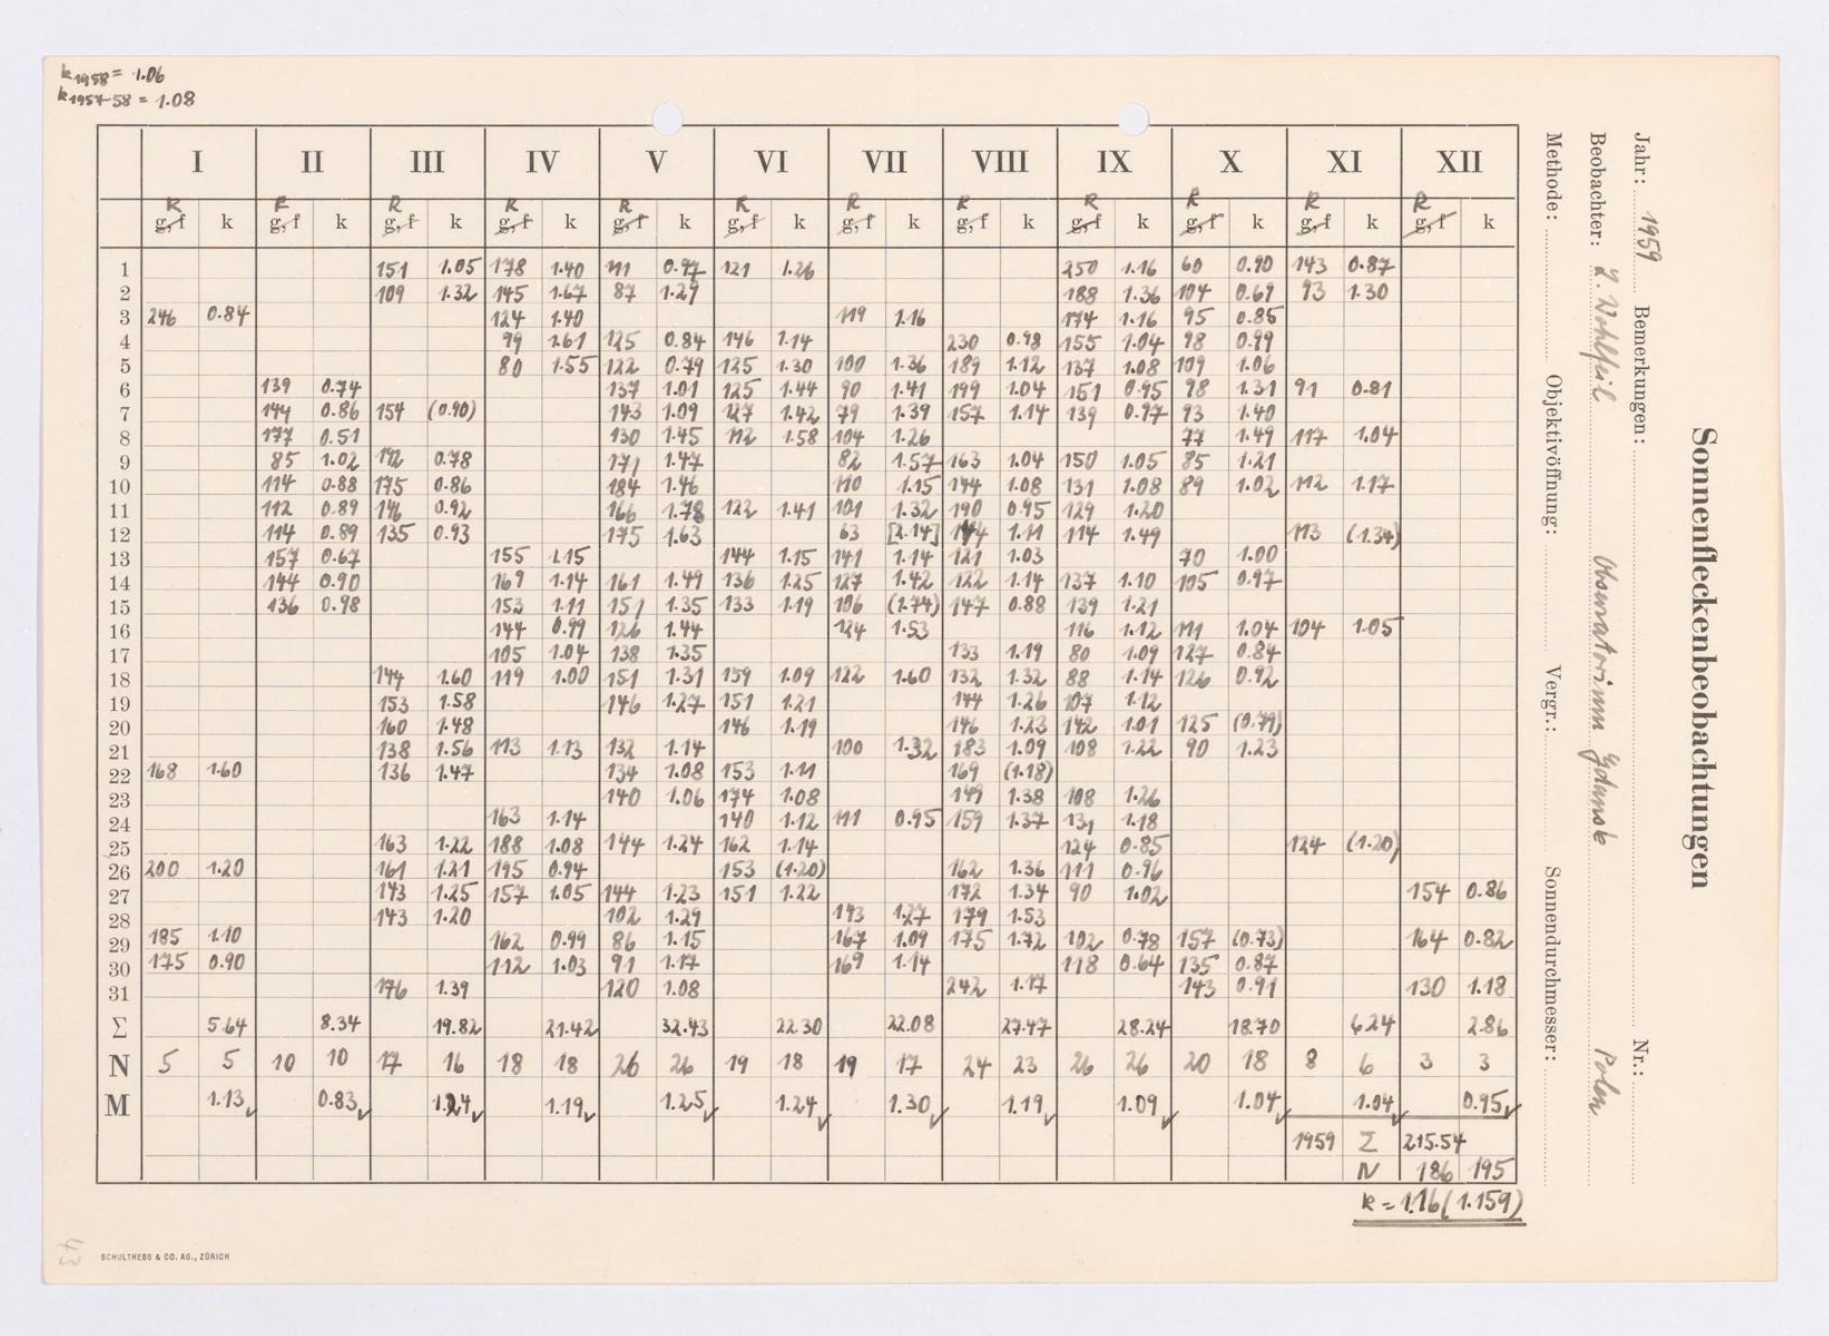 k1958 = 1.06
k1957-58 = 1.08
I II III IV V VI VII VIII IX X XI XII
R R R R R R R R R R R R
g, f k g, f k g, f k g, f k g, f k g, f k g, f k g, f k g, f k g, f k g, f k g, f k
1 151 1.05 178 1.40 111 0.97 121 1.26 250 1.16 60 0.90 143 0.87
2 109 1.32 145 1.67 87 1.29 188 1.36 104 0.69 93 1.30
3 246 0.84 124 1.40 119 1.16 174 1.16 95 0.85
4 99 1.61 125 0.84 146 1.14 230 0.98 155 1.04 98 0.99
5 80 1.55 122 0.79 125 1.30 100 1.36 189 1.12 137 1.08 109 1.06
6 139 0.74 137 1.01 125 1.44 90 1.41 199 1.04 151 0.95 98 1.31 91 0.81
7 144 0.86 154 (0.90) 143 1.09 127 1.42 79 1.39 157 1.14 139 0.97 93 1.40
8 177 0.51 130 1.45 112 1.58 104 1.26 77 1.49 117 1.04
9 85 1.02 192 0.78 171 1.47 82 1.57 163 1.04 150 1.05 85 1.21
10 114 0.88 175 0.86 184 1.46 110 1.15 144 1.08 131 1.08 89 1.02 112 1.17
11 112 0.89 146 0.92 166 1.78 122 1.41 101 1.32 190 0.95 129 1.20
12 114 0.89 135 0.93 175 1.63 63 [2.14] 144 1.11 114 1.49 113 (1.34)
13 157 0.67 155 1.15 144 1.15 141 1.14 121 1.03 70 1.00
14 144 0.90 169 1.14 161 1.49 136 1.25 127 1.42 122 1.14 137 1.10 105 0.97
15 136 0.98 153 1.11 151 1.35 133 1.19 106 (1.74) 147 0.88 139 1.21
16 144 0.99 126 1.44 124 1.53 116 1.12 111 1.04 104 1.05
17 105 1.04 138 1.35 133 1.19 80 1.09 127 0.84
18 144 1.60 119 1.00 151 1.31 159 1.09 122 1.60 132 1.32 88 1.14 126 0.92
19 153 1.58 146 1.27 151 1.21 144 1.26 107 1.12
20 160 1.48 146 1.19 146 1.23 142 1.01 125 (0.79)
21 138 1.56 113 1.13 132 1.14 100 1.32 183 1.09 108 1.22 90 1.23
22 168 1.60 136 1.47 134 1.08 153 1.11 169 (1.18)
23 140 1.06 174 1.08 149 1.38 108 1.26
24 163 1.14 140 1.12 111 0.95 159 1.37 131 1.18
25 163 1.22 188 1.08 144 1.24 162 1.14 124 0.85 124 (1.20)
26 200 1.20 161 1.21 195 0.94 153 (1.20) 162 1.36 111 0.96
27 143 1.25 157 1.05 144 1.23 151 1.22 172 1.34 90 1.02 154 0.86
28 143 1.20 102 1.29 143 1.27 179 1.53
29 185 1.10 162 0.99 86 1.15 167 1.09 175 1.72 102 0.78 157 (0.73) 164 0.82
30 175 0.90 112 1.03 91 1.17 169 1.14 118 0.64 135 0.87
31 176 1.39 120 1.08 242 1.17 143 0.91 130 1.18
Σ 5.64 8.34 19.82 21.42 32.43 22.30 22.08 27.47 28.24 18.70 6.24 2.86
N 5 5 10 10 17 16 18 18 26 26 19 18 19 17 24 23 26 26 20 18 8 6 3 3
M 1.13 0.83 1.24 1.19 1.25 1.24 1.30 1.19 1.09 1.04 1.04 0.95
1959 Σ 215.54
N 186 195
k = 1.16 (1.159)
SCHULTHESS & CO. AG., ZÜRICH
43
Sonnenfleckenbeobachtungen
Jahr: 1959 Bemerkungen: Nr.:
Beobachter: Z. Wohlfeil Observatorium Gdansk Polen
Methode: Objektivöffnung: Vergr.: Sonnendurchmesser: